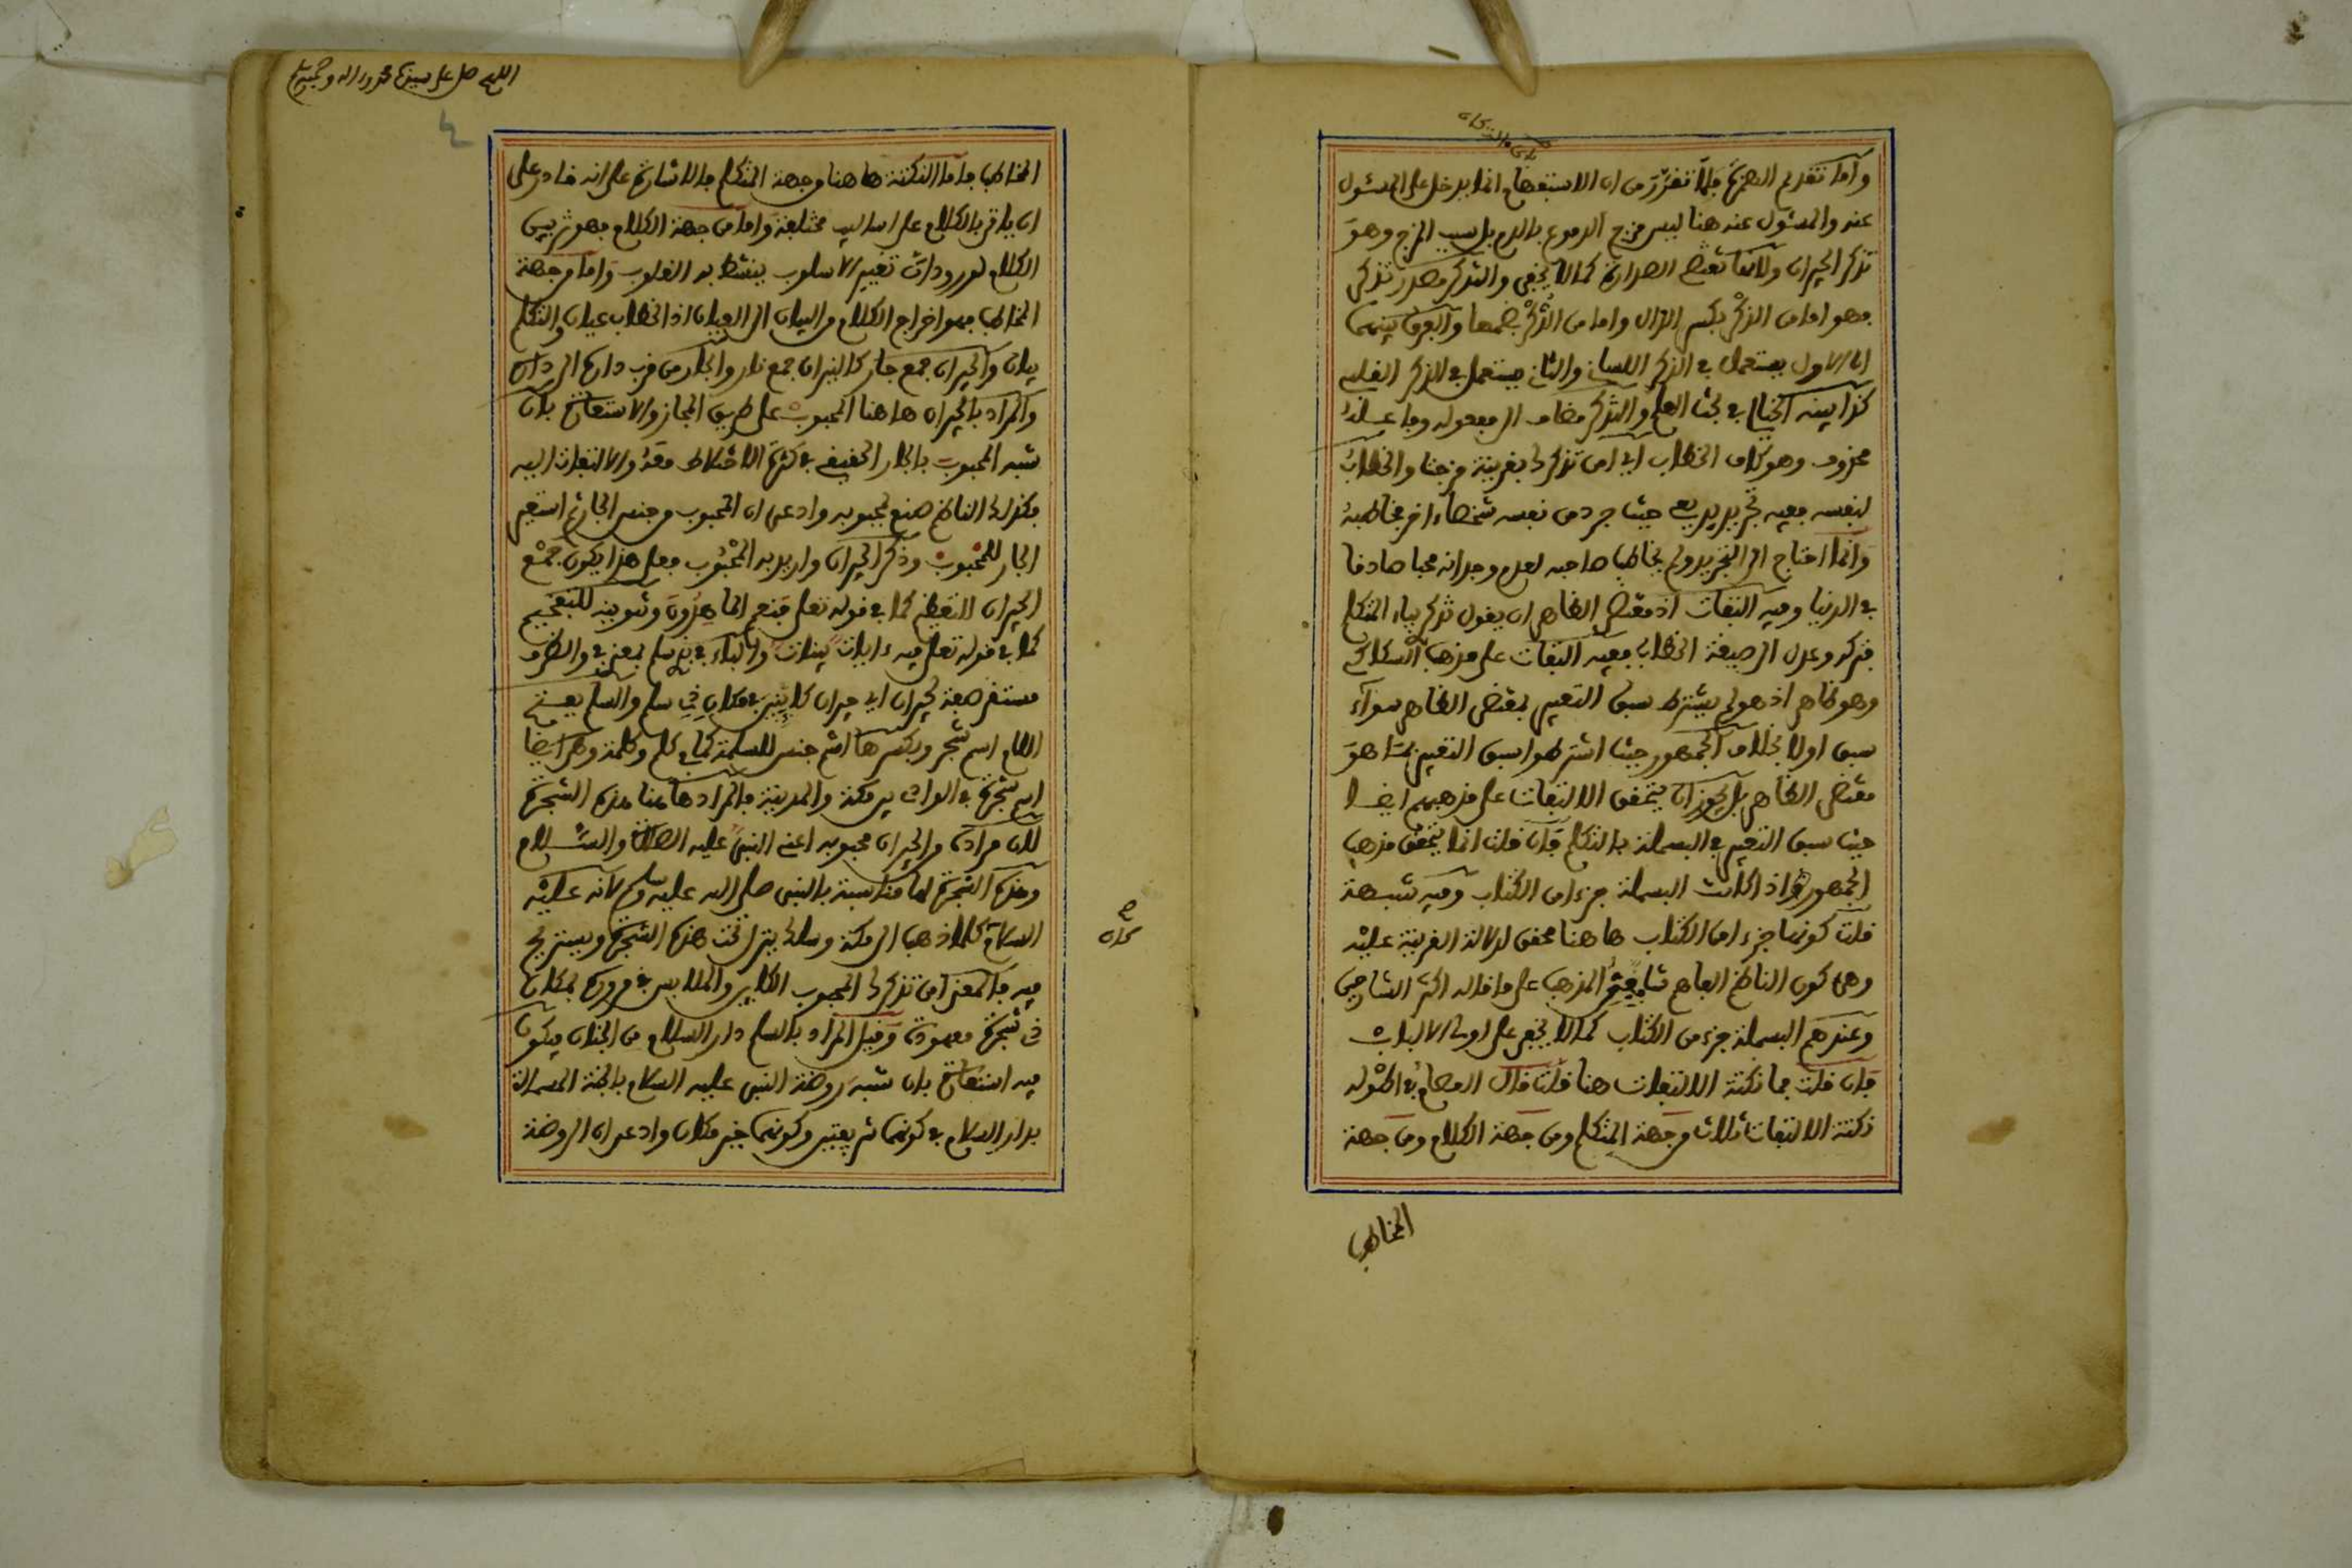 وأما تقديم الهمزة فلما تقرر من ان الاستفهام انما يدخل على المسئول
عنه والمسئول عنه هنا ليس مزج الدموع بالدم بل سبب المزج وهو
تذكر الجيران ولانها تقتضي الصدارة كما لا يخفى والتذكر مصدر تذكر
فهو اما من الذكر بكسر الذال واما من الذكر بضمها والفرق بينهما
ان الاول يستعمل في الذكر اللساني والثاني يستعمل في الذكر القلبي
كذا بينه الخيالي في بحث العلم والتذكر مضاف الى مفعوله وفاعله
محذوف وهو كاف الخطاب اي امن تذكرك بقرينة مزجت والخطاب
لنفسه ففيه تجريد بديعي حيث جرد من نفسه شخصا اخر مخاطبه
وانما احتاج الى التجريد ولم يخاطب صاحبه لعدم وجدانه محبا صادقا
في الدنيا وفيه التفات اذ مقتضى الظاهر ان يقول تذكري بياء المتكلم
فتركه وعدل الى صيغة الخطاب ففيه التفات على مذهب السكاكي
وهو ظاهر اذ هو لم يشترط سبق التعبير بمقتضى الظاهر سواء
سبق اولا بخلاف الجمهور حيث اشترطوا سبق التعبير بما هو
مقتضى الظاهر بل يجوز ان يتحقق الالتفات على مذهبهم ايضا
حيث سبق التعبير في البسملة بالتكلم فان قلت انما يتحقق مذهب
الجمهور اذا كانت البسملة جزءا من الكتاب وفيه شبهة
قلت كونها جزءا من الكتاب هاهنا محقق لدلالة القرينة عليه
وهي كون الناظم الفاهم شافعي المذهب على ما قاله اكثر الشارحين
وعندهم البسملة جزء من الكتاب كما لا يخفى على اولي الالباب
فان قلت فما نكتة الالتفات هنا قلت قال العصام في اطوله
نكتة الالتفات ثلاث من جهة المتكلم ومن جهة الكلام ومن جهة
المخاطب
المخاطب فاما النكتة هاهنا من جهة المتكلم فالاشارة على انه قادر على
ان ياتي بالكلام على اساليب مختلفة واما من جهة الكلام فهو تزيين
الكلام لوروده ان تغيير الاسلوب ينشط به القلوب واما من جهة
المخاطب فهو اخراج الكلام من البيان الى العيان اذ الخطاب عيان والتكلم
بيان والجيران جمع جار كالنيران جمع نار والجار من قرب داره الى دارك
والمراد بالجيران هاهنا المحبوب على طريق المجاز والاستعارة بان
شبه المحبوب بالجار الحقيقي في كثرة الاختلاط معه والالتفات اليه
فكذلك الناظم صنع لمحبوبه وادعى ان المحبوب من جنس الجار ثم استعير
الجار للمحبوب وذكر الجيران واريد به المحبوب فعلى هذا يكون جمع
الجيران للتعظيم كما في قوله تعلى فنعم الماهدون وتنوينه للتفخيم
كما في قوله تعلى فيه ءايات بينات والباء في بذي سلم بمعنى في والظرف
مستقر صفة لجيران اي جيران كاينين في مكان ذي سلم والسلم بفتح
اللام اسم شجر وبكسرها اسم جنس للسلمة كما في كلم وكلمة وهو ايضا
اسم شجرة في الواقع بين مكة والمدينة فالمراد هاهنا هذه الشجرة
لان مراده من الجيران محبوبه اعني النبي عليه الصلاة والسلام
وهذه الشجرة لها مناسبة بالنبي صلى الله عليه وسلم لانه عليه
السلام كلما ذهب الى مكة وسلك ينزل تحت هذه الشجرة ويستريح
فيه فالمعنى امن تذكرك المحبوب الكاين والملابس في مروره بمكان
ذي شجرة معهودة وقيل المراد بالسلم دار السلام من الجنان فيكون
فيه استعارة بان شبه روضة النبي عليه السلام بالجنة المسماة
بدار السلام في كونهما وكونهما خير مكان وادعى ان الروضة
اللهم صل على سيدنا محمد وءاله وصحبه